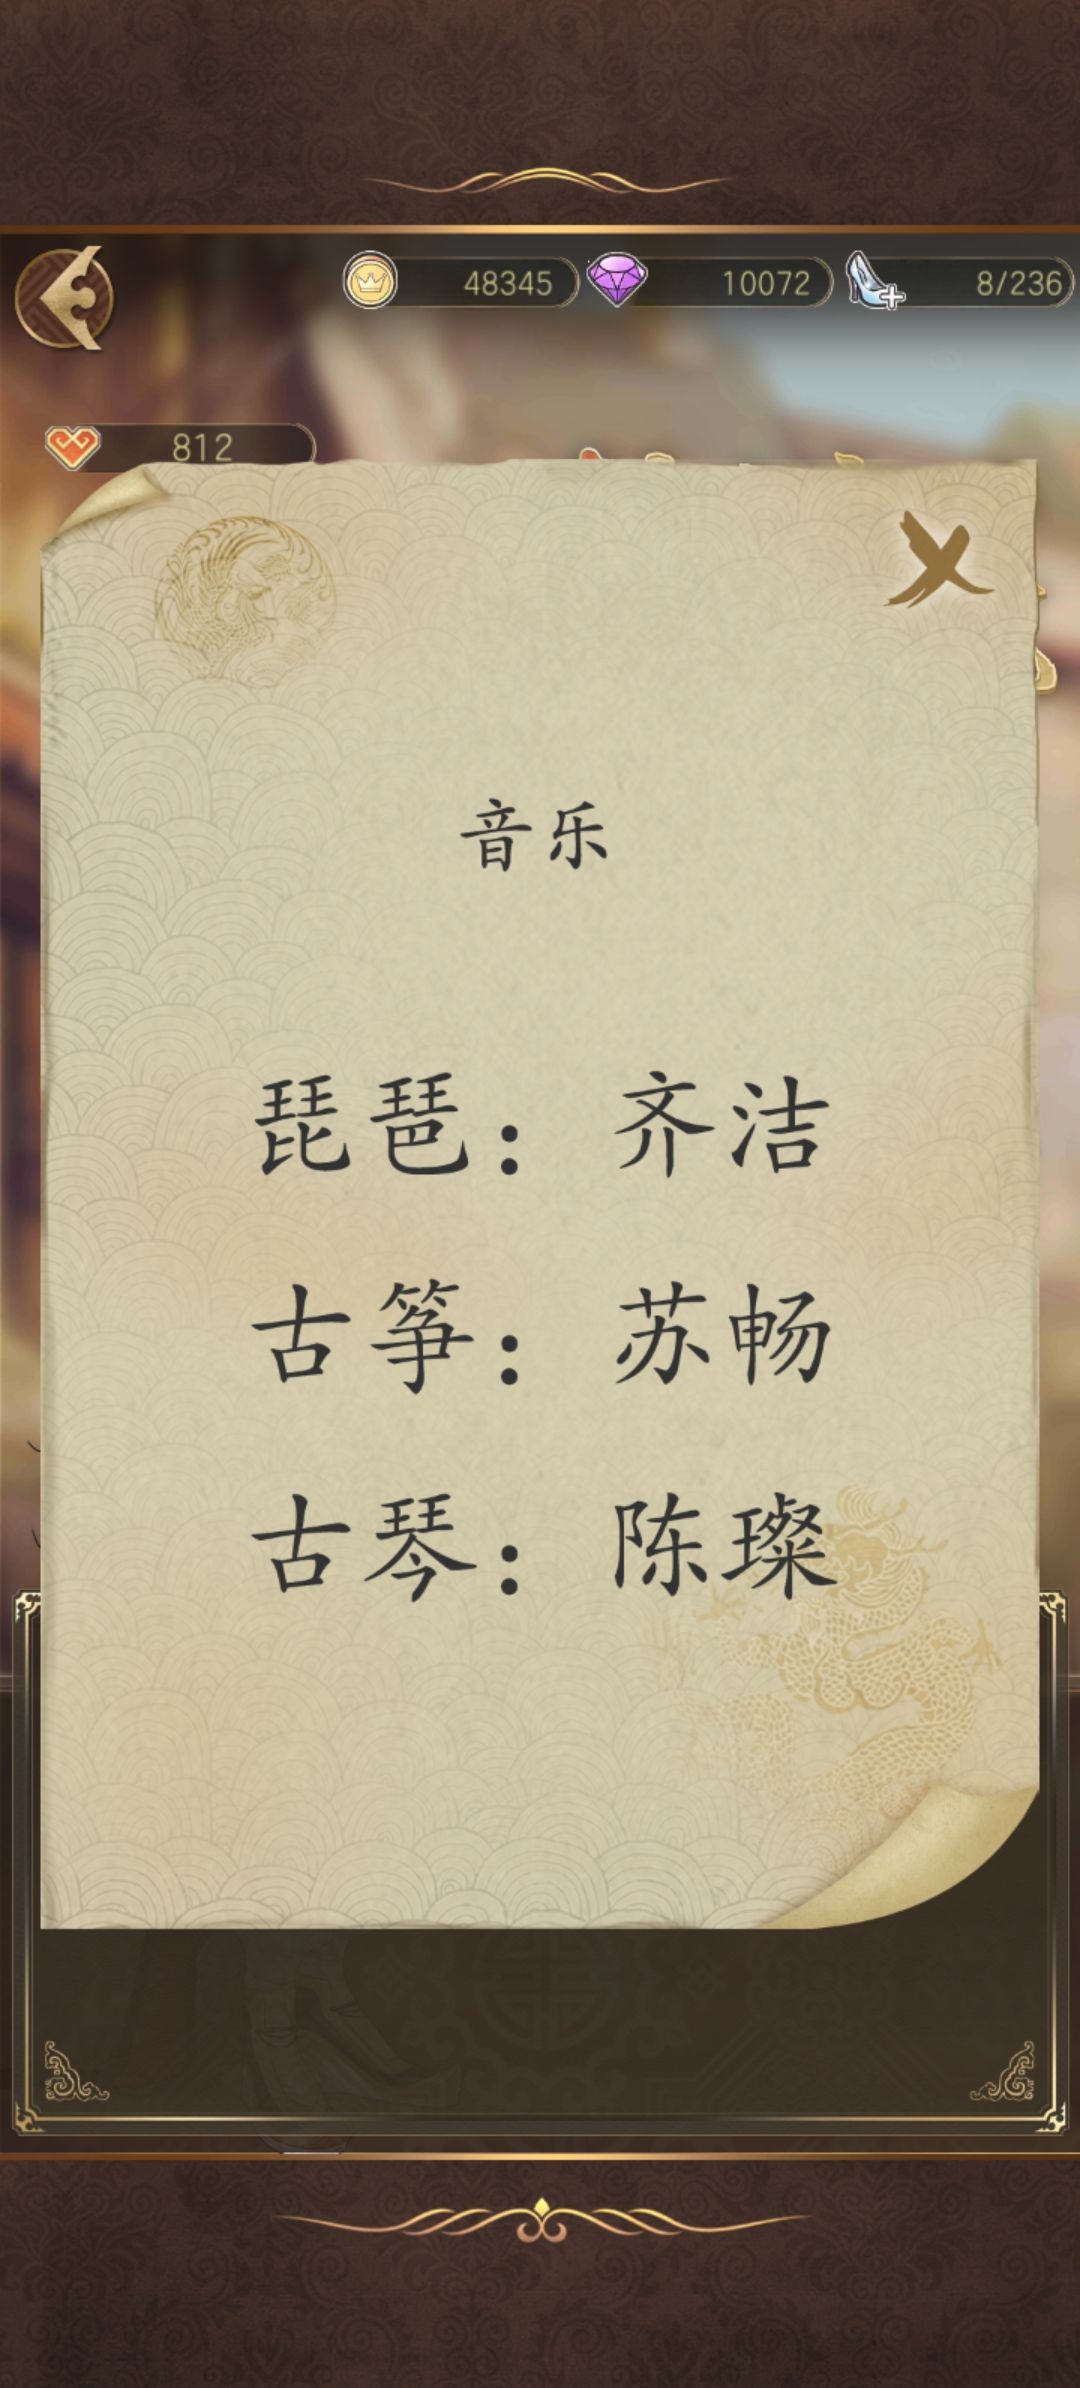 48345 10072 8/236
812
音乐
琵琶：齐洁
古筝：苏畅
古琴：陈璨